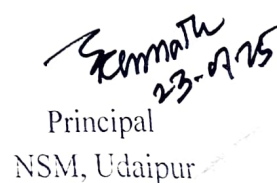 23-07-25
Principal
NSM, Udaipur